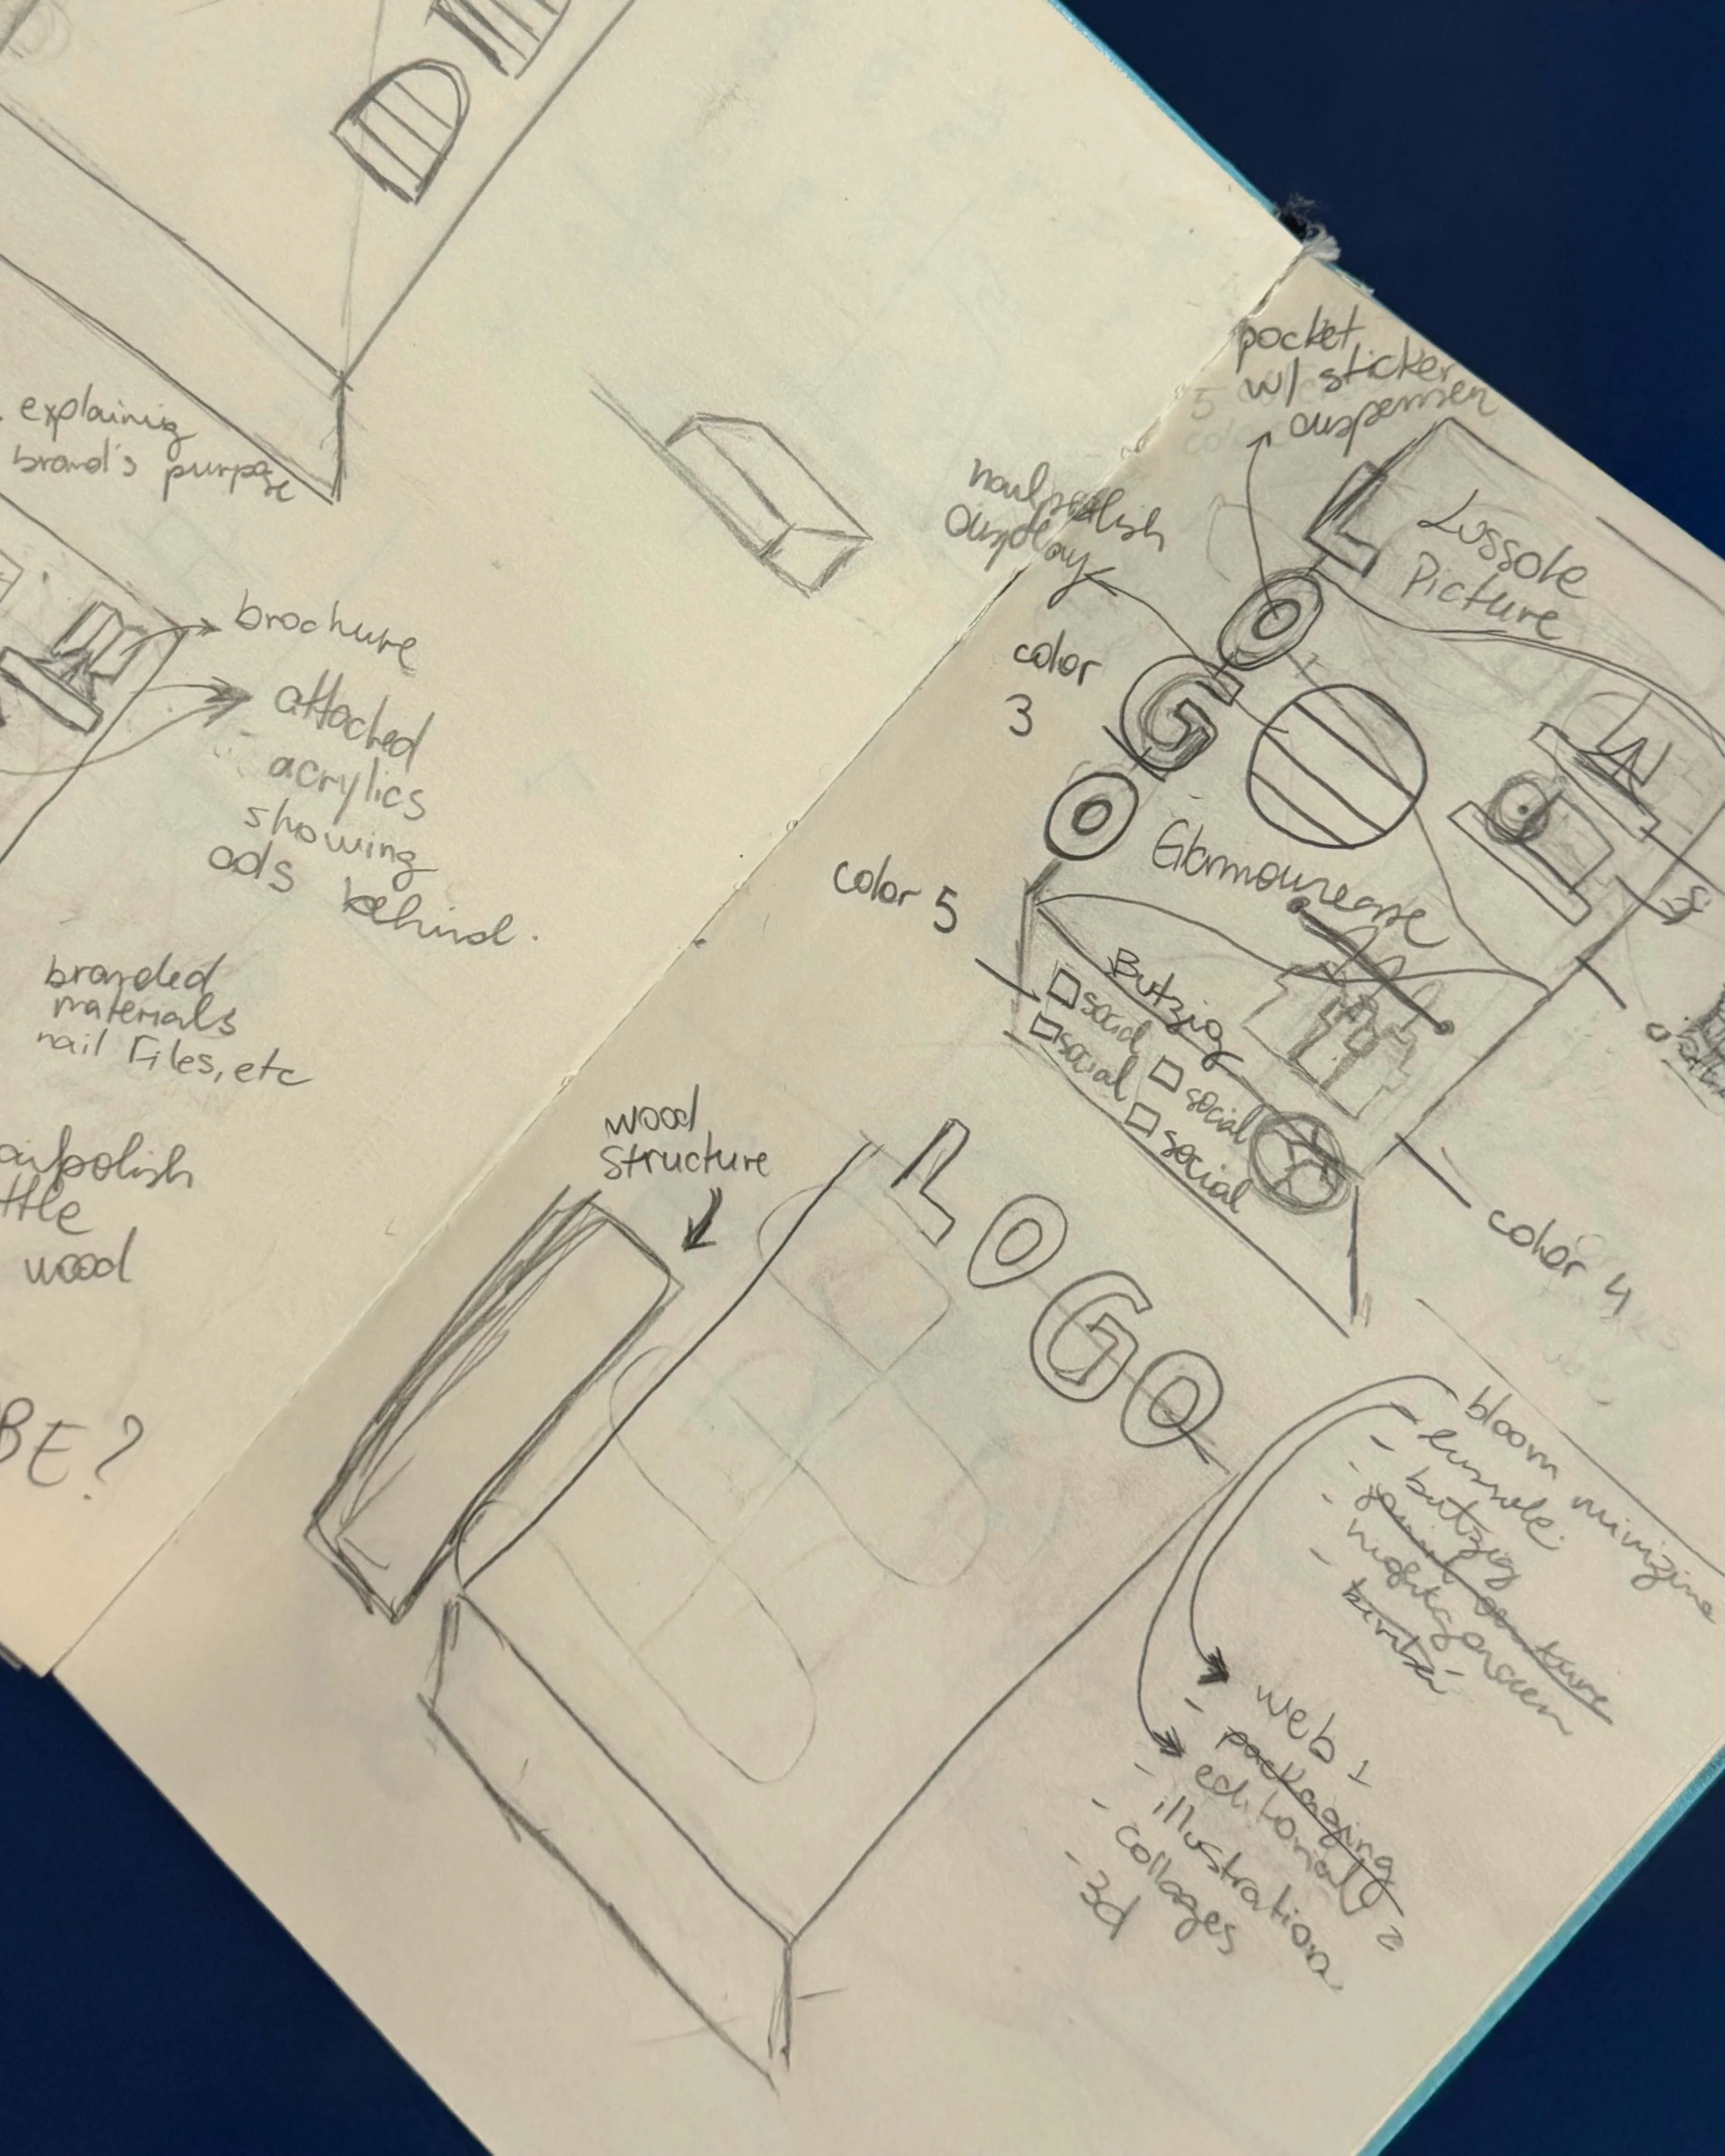 explainig
brand's purpose
brochure
attached
acrylics
showing
ads behind.
branded
materials
nail Files, etc
polish
wood
BE?
pocket
w/ sticker
nailpolish
color
3
LOGO
Lossole
Picture
Glamourease
color 5
Butzig
social
social
social
social
color 4
wood
structure
LOGO
bloom minizine
- lussole
- butzig
- 
- 
- web 1
- packaging
- editorial 2
- illustration
- collages
- 3d